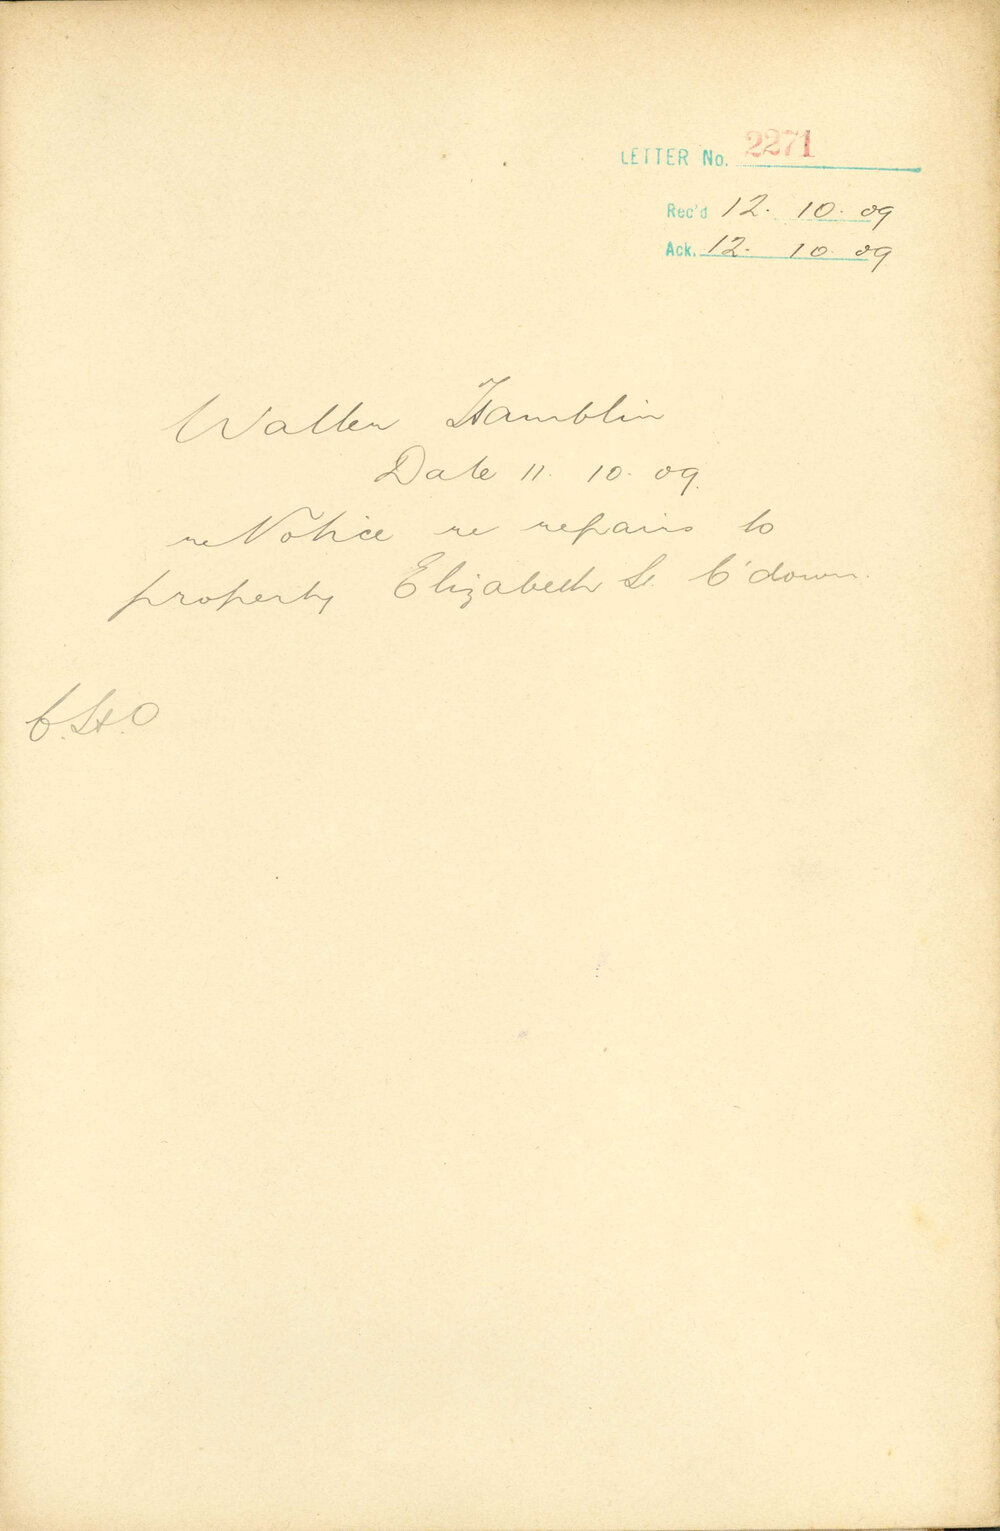 LETTER No. 2271
Rec'd 12. 10. 09
Ack. 12. 10. 09
Walter Hamblin
Date 11. 10. 09.
re Notice re repairs to
property Elizabeth St. C'down.
C.H.O